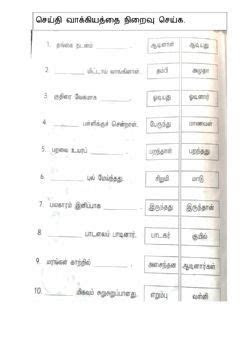 செய்தி வாக்கியத்தை நிறைவு செய்க.
1. தங்கை நடனம் __________. ஆடினாள் ஆடியது
2. __________ மிட்டாய் வாங்கினாள். தம்பி அமுதா
3. குதிரை வேகமாக __________. ஓடியது ஓடினார்
4. __________ பள்ளிக்குச் சென்றான். பேருந்து மாணவன்
5. பறவை உயரப் __________. பறந்தாள் பறந்தது
6. __________ புல் மேய்ந்தது. சிறுமி மாடு
7. பலகாரம் இனிப்பாக __________. இருந்தது இருந்தான்
8. __________ பாடலைப் பாடினார். பாடகர் குயில்
9. மரங்கள் காற்றில் __________. அசைந்தன ஆடினார்கள்
10. __________ மிகவும் சுறுசுறுப்பானது. எறும்பு வள்ளி